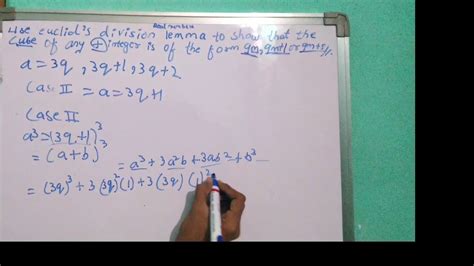 Real numbers
Use euclid's division lemma to show that the
Cube of any + integer is of the form 9m, 9m+1 or 9m+8.
a = 3q, 3q+1, 3q+2
Case II = a = 3q+1
Case II
a³ = (3q+1)³
= (a+b)³
= a³ + 3a²b + 3ab² + b³
= (3q)³ + 3(3q)²(1) + 3(3q)(1)²